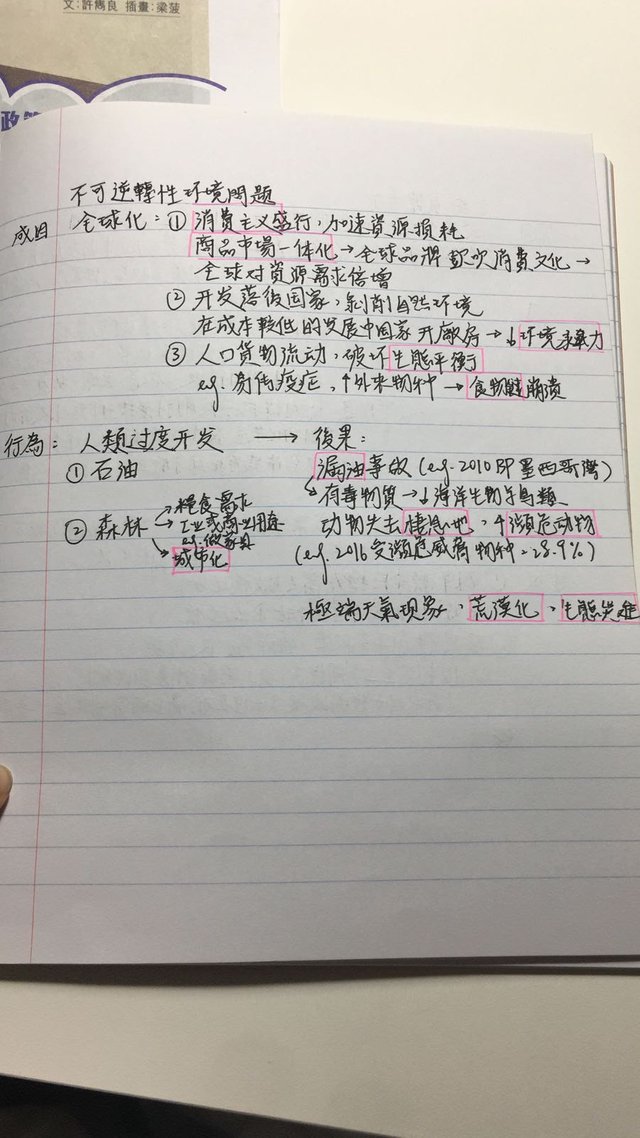 文:許雋良 插畫:梁菠
不可逆轉性环境問題
成因 全球化:① 消費主义盛行,加速資源損耗
商品市場一体化→全球品牌鼓吹消費文化→
全球对資源需求倍增
② 开发落後国家,剝削自然环境
在成本較低的发展中国家开廠房→↓环境承載力
③ 人口貨物流动,破坏生態平衡
eg. 傳疫症,↑外來物种→食物鏈崩潰
行為: 人類过度开发 → 後果:
① 石油 漏油事故 (e.g. 2010 BP 墨西哥灣)
↳有毒物質→↓海洋生物、鳥類
② 森林 →糧食需求 动物失去棲息地,↑瀕危动物
→工业或商业用途 e.g. 做家具 (e.g. 2016 受瀕危威脅物种=28.9%)
→城市化
極端天氣現象、荒漠化、生態災难